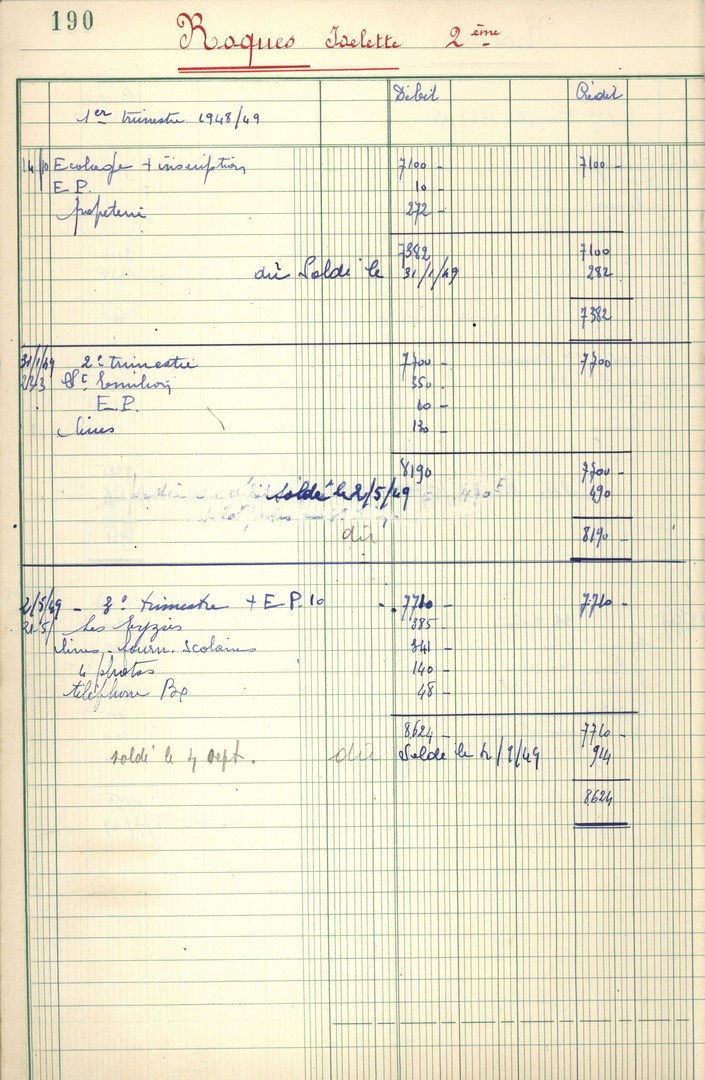 190
Roques Joelette 2ème
Débit Crédit
1er trimestre 1948/49
14/10 Ecolage + inscription 7100 - 7100 -
E P. 10 -
papeterie 272 -
7382 7100
dû Soldé le 31/1/49 282
7382
31/1/49 2e trimestre 7700 - 7700
23.3 St Emilion 350 -
E.P. 10 -
livres 130 -
8190 7700 -
soldé le 2/5/49 490
dû 8190 -
2/5/49 - 3e trimestre + E.P. 10 7710 - 7.710 -
21-5 Les Eyzies 385 -
livres - fourn. scolaires 341 -
4 photos 140 -
téléphone Bx 48 -
8.624 - 7710 -
soldé le 4 sept. dû Soldé le 4/9/49 914
8624